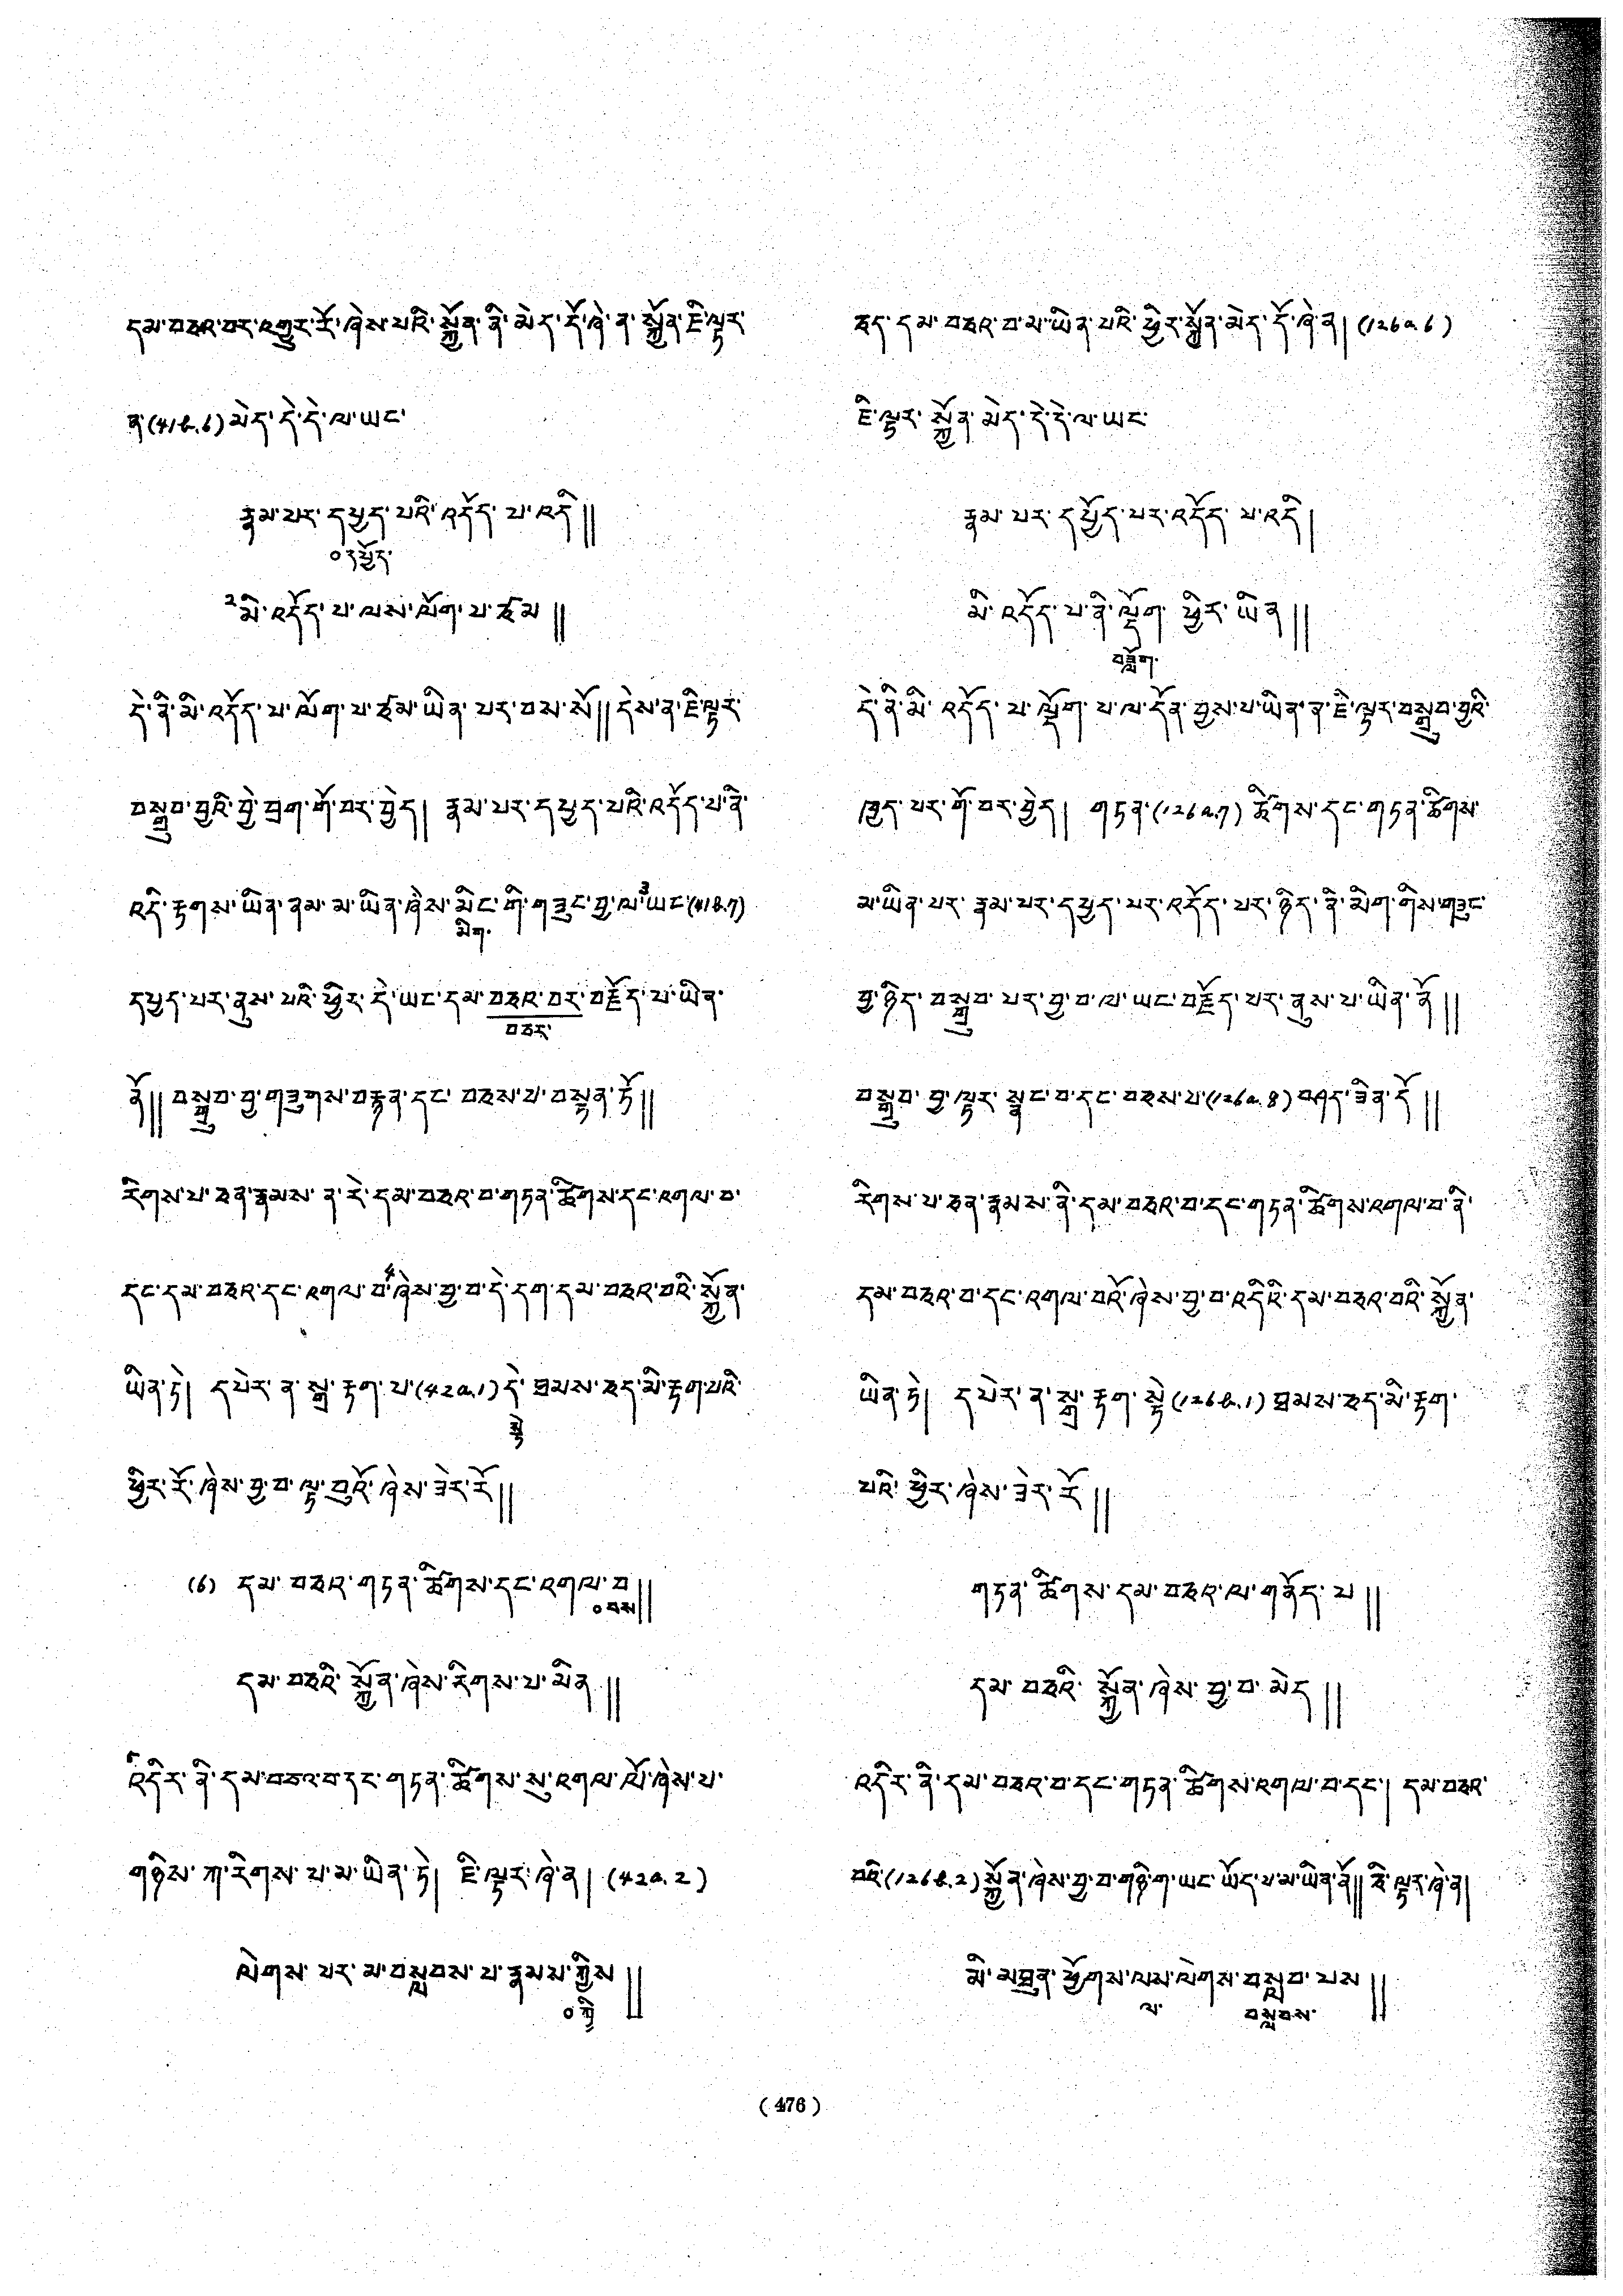 དམ་བཅའ་བར་འགྱུར་རོ་ཞེས་པའི་སྐྱོན་ནི་མེད་དོ་ཞེ་ན་སྐྱོན་ཇི་ལྟར་
ན་(41b.6)མེད་དེ་དེ་ལ་ཡང་
རྣམ་པར་དཔྱད་པའི་འདོད་པ་འདི༎
०དཔྱོད་
2མི་འདོད་པ་ལས་ལོག་པ་ཙམ༎
དེ་ནི་མི་འདོད་པ་ལོག་པ་ཙམ་ཡིན་པར་བས་སོ༎དེས་ན་ཇི་ལྟར་
བསྒྲུབ་བྱའི་བྱེ་བྲག་གོ་བར་བྱེད། རྣམ་པར་དཔྱད་པའི་འདོད་པ་ནི་
འདི་རྟགས་ཡིན་ནམ་མ་ཡིན་ཞེས་མིང་གི་གཟུང་བྱ་ལ་3ཡང་(41b.7)
མིག་
དཔྱད་པར་ནུས་པའི་ཕྱིར་དེ་ཡང་དམ་བཅའ་བར་བརྗོད་པ་ཡིན་
བཅར་
ནོ༎བསྒྲུབ་བྱ་གཟུགས་བརྙན་དང་བཅས་པ་བསྟན་ཏོ༎
རིགས་པ་ཅན་རྣམས་ན་རེ་དམ་བཅའ་བ་གཏན་ཚིགས་དང་འགལ་བ་
དང་དམ་བཅའ་དང་འགལ་བ་4ཞེས་བྱ་བ་དེ་དག་དམ་བཅའ་བའི་སྐྱོན་
ཡིན་ཏེ། དཔེར་ན་སྒྲ་རྟག་པ་(42a.1)དེ་ཐམས་ཅད་མི་རྟག་པའི་
སྟེ
ཕྱིར་རོ་ཞེས་བྱ་བ་ལྟ་བུའོ་ཞེས་ཟེར་རོ༎
(6) དམ་བཅའ་གཏན་ཚིགས་དང་འགལ་བ༎
०བས
དམ་བཅའི་སྐྱོན་ཞེས་རིགས་པ་མིན༎
5འདིར་ནི་དམ་བཅའ་བ་དང་གཏན་ཚིགས་སུ་འགལ་ལོ་ཞེས་པ་
གཉིས་ཀ་རིགས་པ་མ་ཡིན་ཏེ། ཇི་ལྟར་ཞེ་ན། (42a.2)
ལེགས་པར་མ་བསླབས་པ་རྣམས་ཀྱིས༎
०ཀྱི
ཅད་དམ་བཅའ་བ་མ་ཡིན་པའི་ཕྱིར་སྐྱོན་མེད་དོ་ཞེ་ན།(126a6)
ཇི་ལྟར་སྐྱོན་མེད་དེ་དེ་ལ་ཡང་
རྣམ་པར་དཔྱོད་པར་འདོད་པ་འདི།
མི་འདོད་པ་ནི་ལྡོག་ཕྱིར་ཡིན༎
བཟློག་
དེ་ནི་མི་འདོད་པ་ལྡོག་པ་ལ་དོན་བྱས་པ་ཡིན་ན་ཇི་ལྟར་བསྒྲུབ་བྱའི་
ཁྱད་པར་གོ་བར་བྱེད། གཏན་(126a.7)ཚིགས་དང་གཏན་ཚིགས་
མ་ཡིན་པར་རྣམ་པར་དཔྱད་པར་འདོད་པར་ཉིད་ནི་མིག་གིས་གཟུང་
བྱ་ཉིད་བསྒྲུབ་པར་བྱ་བ་ལ་ཡང་བརྗོད་པར་ནུས་པ་ཡིན་ནོ༎
བསྒྲུབ་བྱ་ལྟར་སྣང་བ་དང་བཅས་པ་(126a.8)བཤད་ཟིན་ཏོ༎
རིགས་པ་ཅན་རྣམས་ནི་དམ་བཅའ་བ་དང་གཏན་ཚིགས་འགལ་བ་ནི་
དམ་བཅའ་བ་དང་འགལ་བའོ་ཞེས་བྱ་བ་འདིའི་དམ་བཅའ་བའི་སྐྱོན་
ཡིན་ཏེ། དཔེར་ན་སྒྲ་རྟག་སྟེ(126b.1)ཐམས་ཅད་མི་རྟག་
པའི་ཕྱིར་ཞེས་ཟེར་རོ༎
གཏན་ཚིགས་དམ་བཅའ་ལ་གནོད་པ༎
དམ་བཅའི་སྐྱོན་ཞེས་བྱ་བ་མེད༎
འདིར་ནི་དམ་བཅའ་བ་དང་གཏན་ཚིགས་འགལ་བ་དང་། དམ་བཅའ་
བའི་(126b.2)སྐྱོན་ཞེས་བྱ་བ་གཉི་ག་ཡང་ཡོད་པ་མ་ཡིན་ནོ༎ཇི་ལྟར་ཞེ་ན།
མི་མཐུན་ཕྱོགས་ལས་ལེགས་བསླབ་པས༎
ལ་ བསླབས་
(476)